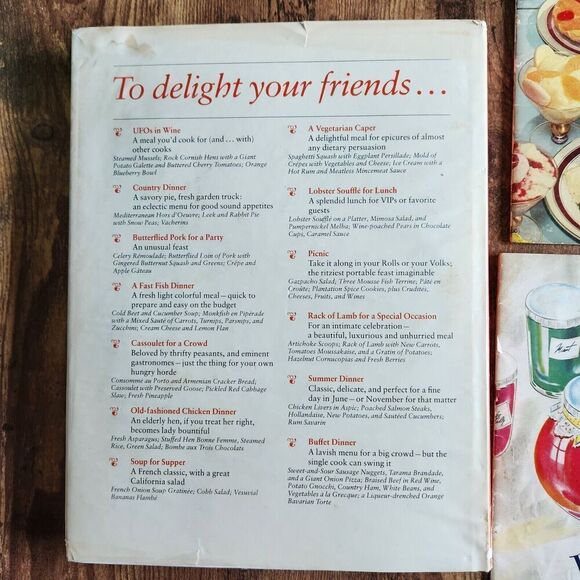 To delight your friends...
UFOs in Wine
A meal you'd cook for (and ... with)
other cooks
Steamed Mussels; Rock Cornish Hens with a Giant
Potato Galette and Buttered Cherry Tomatoes; Orange
Blueberry Bowl
Country Dinner
A savory pie, fresh garden truck:
an eclectic menu for good sound appetites
Mediterranean Hors d'Oeuvre; Leek and Rabbit Pie
with Snow Peas; Vacherins
Butterflied Pork for a Party
An unusual feast
Celery Rémoulade; Butterflied Loin of Pork with
Gingered Butternut Squash and Greens; Crêpe and
Apple Gâteau
A Fast Fish Dinner
A fresh light colorful meal—quick to
prepare and easy on the budget
Cold Beet and Cucumber Soup; Monkfish en Pipérade
with a Mixed Sauté of Carrots, Turnips, Parsnips, and
Zucchini; Cream Cheese and Lemon Flan
Cassoulet for a Crowd
Beloved by thrifty peasants, and eminent
gastronomes—just the thing for your own
hungry horde
Consommé au Porto and Armenian Cracker Bread;
Cassoulet with Preserved Goose; Pickled Red Cabbage
Slaw; Fresh Pineapple
Old-fashioned Chicken Dinner
An elderly hen, if you treat her right,
becomes lady bountiful
Fresh Asparagus; Stuffed Hen Bonne Femme, Steamed
Rice, Green Salad; Bombe aux Trois Chocolats
Soup for Supper
A French classic, with a great
California salad
French Onion Soup Gratinée; Cobb Salad; Vesuvial
Bananas Flambé
A Vegetarian Caper
A delightful meal for epicures of almost
any dietary persuasion
Spaghetti Squash with Eggplant Persillade; Mold of
Crêpes with Vegetables and Cheese; Ice Cream with a
Hot Rum and Meatless Mincemeat Sauce
Lobster Soufflé for Lunch
A splendid lunch for VIPs or favorite
guests
Lobster Soufflé on a Platter, Mimosa Salad, and
Pumpernickel Melba; Wine-poached Pears in Chocolate
Cups, Caramel Sauce
Picnic
Take it along in your Rolls or your Volks;
the ritziest portable feast imaginable
Gazpacho Salad; Three Mousse Fish Terrine; Pâté en
Croûte; Plantation Spice Cookies, plus Crudités,
Cheeses, Fruits, and Wines
Rack of Lamb for a Special Occasion
For an intimate celebration—
a beautiful, luxurious and unhurried meal
Artichoke Scoops; Rack of Lamb with New Carrots,
Tomatoes Moussakaise, and a Gratin of Potatoes;
Hazelnut Cornucopias and Fresh Berries
Summer Dinner
Classic, delicate, and perfect for a fine
day in June—or November for that matter
Chicken Livers in Aspic; Poached Salmon Steaks,
Hollandaise, New Potatoes, and Sautéed Cucumbers;
Rum Savarin
Buffet Dinner
A lavish menu for a big crowd—but the
single cook can swing it
Sweet-and-Sour Sausage Nuggets, Tarama Brandade,
and a Giant Onion Pizza; Braised Beef in Red Wine,
Potato Gnocchi, Country Ham, White Beans, and
Vegetables à la Grecque; a Liqueur-drenched Orange
Bavarian Torte